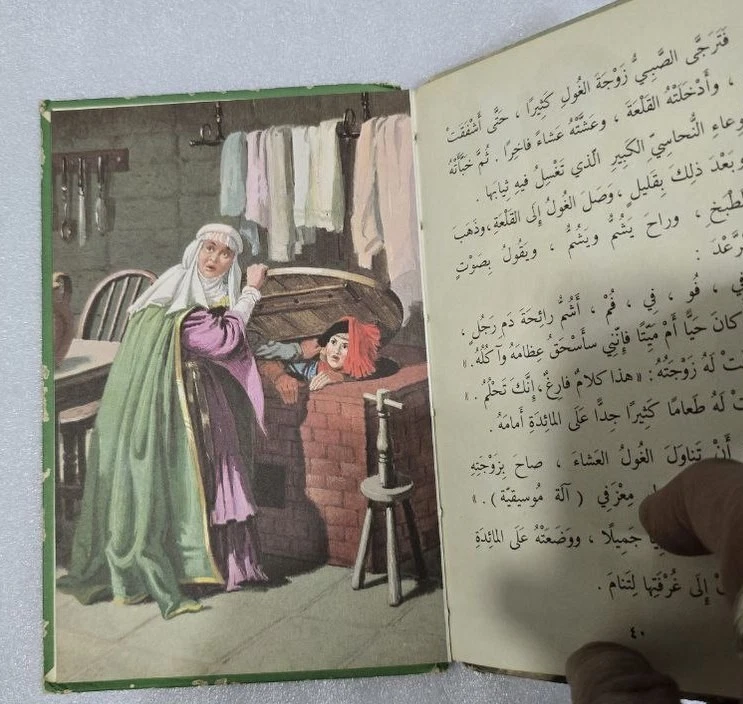 فَتَرَجَّى الصَّبِيُّ زَوْجَةَ الغُولِ كَثِيرًا ، حَتَّى أَشْفَقَتْ
، وأَدْخَلَتْهُ القَلْعَةَ ، وعَشَّتْهُ عَشاءً فاخِرًا . ثُمَّ خَبَّأَتْهُ
النُّحاسِيِّ الكَبِيرِ الَّذي تَغْسِلُ فيهِ ثِيابَها .
وبَعْدَ ذلِكَ بِقَليلٍ ، وَصَلَ الغُولُ إلَى القَلْعَةِ، وذَهَبَ
، وراحَ يَشُمُّ ويَشُمُّ ، ويَقُولُ بِصَوْتٍ
:
، فُو ، فِي ، فُمْ ، أَشُمُّ رائِحَةَ دَمِ رَجُلٍ ،
كانَ حَيًّا أَمْ مَيِّتًا فإنَّنِي سأَسْحَقُ عِظامَهُ وآكُلُهُ. »
لَهُ زَوْجَتُهُ : « هذا كلامٌ فارِغٌ ، إنَّكَ تَحْلُمُ . »
لَهُ طَعامًا كَثيرًا جِدًّا عَلَى المائِدَةِ أَمامَهُ .
أَنْ تَناوَلَ الغُولُ العَشاءَ ، صاحَ بِزَوْجَتِهِ
مِعْزَفِي ( آلَة مُوسيقيّة ) . »
جَمِيلًا ، ووَضَعَتْهُ عَلَى المائِدَةِ
إلَى غُرْفَتِها لِتَنامَ .
٤٠